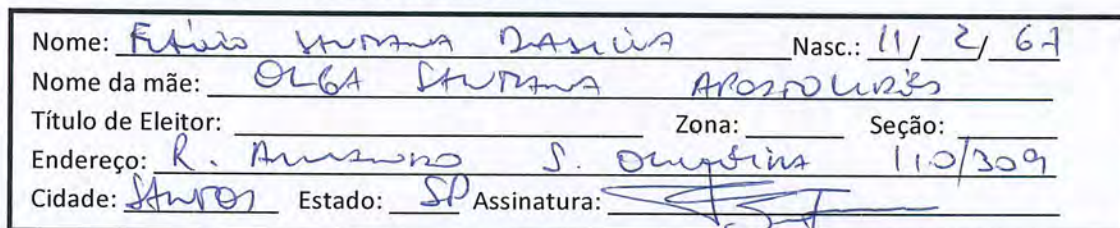 Nome: Flávio SANTANA DASILVA Nasc.: 11/ 2/ 67
Nome da mãe: OLGA SANTANA
Título de Eleitor: Zona: Seção:
Endereço: R. S. 110/309
Cidade: SANTOS Estado: SP Assinatura: